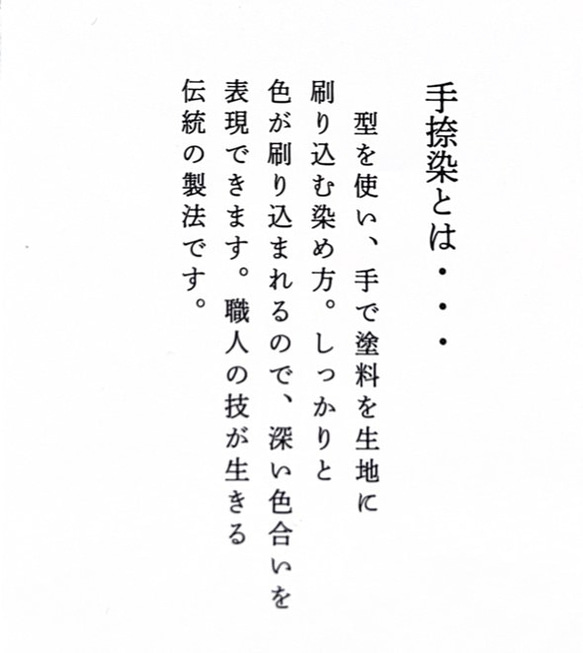 手捺染とは・・・
型を使い、手で塗料を生地に
刷り込む染め方。しっかりと
色が刷り込まれるので、深い色合いを
表現できます。職人の技が生きる
伝統の製法です。